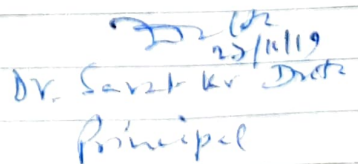 27/11/19
Dr. Sarat Kr Dutta
Principal